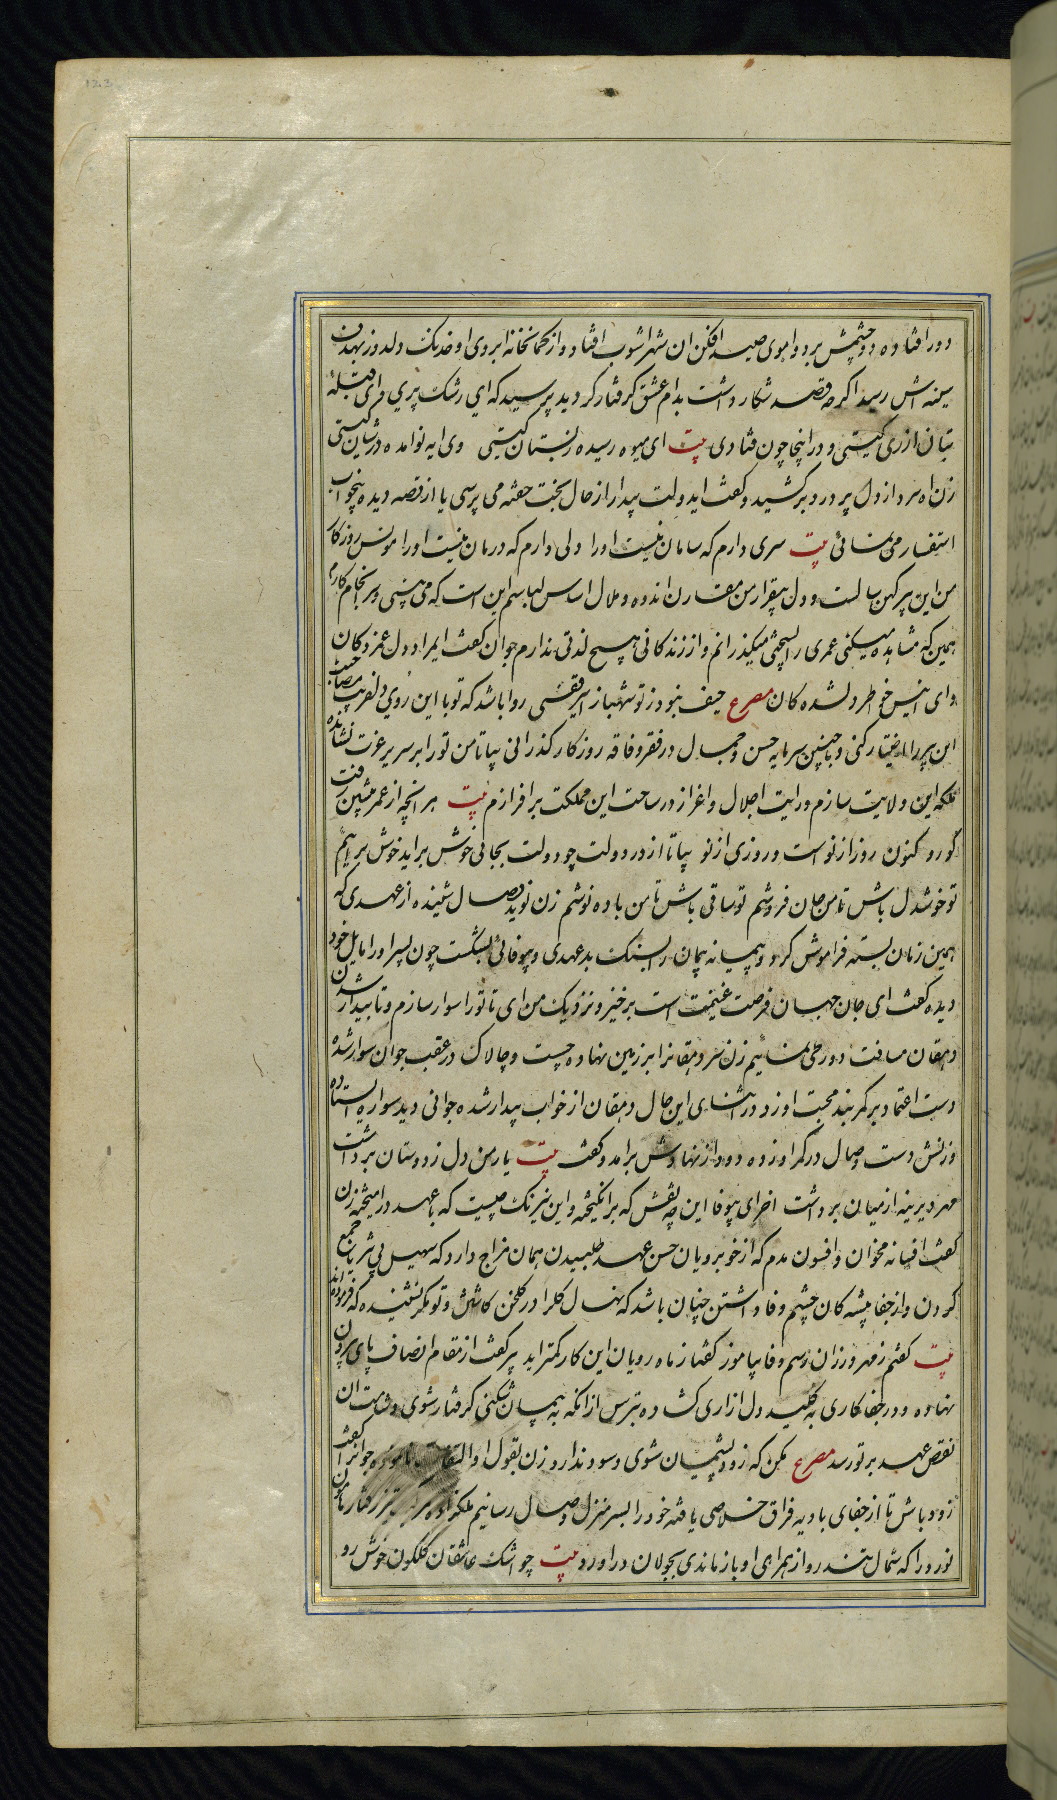 دور افتاده دو چشمش بر دو اهوی صید افکن ان شهراشوب افتاد و از کمانخانه ابروی او خدنک دلدوز بهدف
سینه اش رسید اکرچه قصد شکار داشت بدام عشق کرفتار کردید پرسید که ای رشک پری و ای قبله
بتان ازری کیستی و در اینجا چون فتادی بیت ای میوه رسیده ز بستان کیستی وی ایه نوامده در شان کیستی
زن اه سرد از دل پر درد برکشید و کفت ایدولت بیدار از حال بخت خفته می پرسی یا از قصه دیده بیخواب
استفسار می نمائی بیت سری دارم که سامان نیست اورا دلی دارم که درمان نیست اورا مونس روزکار
من این پیر کهن سالست و دل بیقرار من مقارن اندوه و ملال اساس لباسم این است که می بینی و سرانجام کارم
همین که مشاهده میکنی عمری بسختی میکذرانم و از زندکانی هیچ لذتی ندارم جوان کفت ایمراد دل غمزدکان
وای انیس خواطر دلشده کان مصرع حیف نبود ز تو شهباز اسیر قفسی روا باشد که تو با این روی دلفریب مصاحبت
این پیر را اختیار کنی و با چنین سرمایه حسن و جمال در فقر و فاقه روزکار کذرانی بیا تا من تورا بر سریر عزت نشانده
ملکه این ولایت سازم و رایت اجلال و اعزاز در ساحت این مملکت برافرازم بیت هر انچه از عمر پیشین رفت
کو رو کنون روز از نو است و روزی از نو بیا تا از در دولت چو دولت بجانی خوش براید خوش برایم
تو خوشدل باش تا من جان فروشم تو ساقی باش تا من باده نوشم زن نوید وصال شنیده از عهدی که
همین زمان بسته فراموش کرد و پیمانه پیمان را بسنک بدعهدی و بیوفائی بشکست چون پسر اورا مایل خود
دیده کفت ای جان جهان فرصت غنیمت است برخیز و نزدیک من ای تا تورا سوار سازم و تا بیدار شدن
دهقان مسافت دور طی نمائیم زن سر دهقانرا بر زمین نهاده چست و چالاک در عقب جوان سوار شده
دست اعتماد بر کمربند محبت او زد در اثنای این حال دهقان از خواب بیدار شده جوانی دید سواره ایستاده
و زنش دست وصال در کمر او زده دود از نهادش برامد و کفت بیت یار من دل ز دوستان برداشت
مهر دیرینه از میان برداشت اخر ای بیوفا این چه نقش که برانکیخته و این نیرنک چیست که با عهد درامیخته زن
کفت افسانه مخوان و افسون مدم که از خوبرویان حسن عهد طلبیدن همان مزاج دارد که سهیل بی ثریا جمع
کردن و از جفاپیشه کان چشم وفا داشتن چنان باشد که نهال کلرا در کلخن کاشتن و تو مکر نشنیده که فرموده اند
بیت کفتم ز مهرورزان رسم وفا بیاموز کفتا ز ماه رویان این کار کمتر اید پیر کفت از مقام انصاف پای بیرون
نهاده و در جفاکاری به کلید دل ازاری کشاده بترس از انکه به پیمان شکنی کرفتار شوی و شامت ان
نقص عهد بر تو رسد مصرع مکن که زود پشیمان شوی و سود ندارد زن بقول او التفات نا نموده جوانرا کفت
زود باش تا از جفای بادیه فراق خلاصی یافته خود را بسر منزل وصال رسانیم
نورد را که شمال تندرو از همراهی او باز ماندی بجولان دراورد بیت چو اشک عاشقان کلکون خوش رو